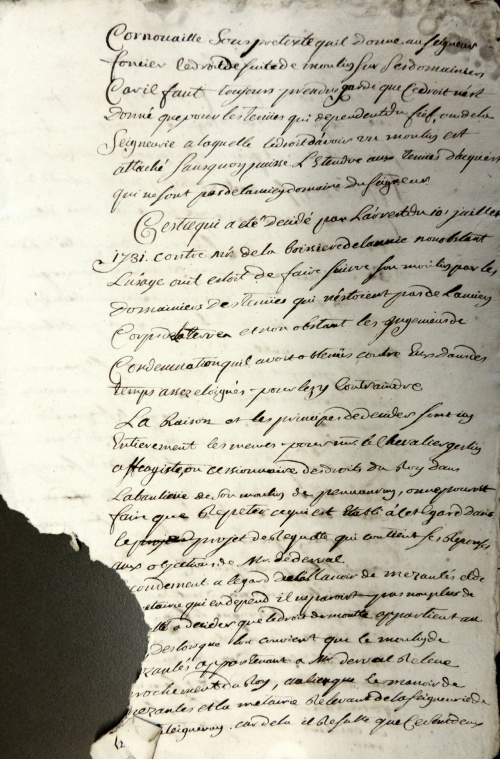 Cornouaille sous pretexte quil donne au seigneur
foncier le droit de suite de moulin sur ses domainiers
Car il faut toujours prendre garde que ce droit n'est
Donné que pour les tenües qui dependent du fief, ou de la
Seigneurie a laquelle le droit d'avoir un moulin est
attaché sans quon puisse L'Etendre aux tenües dacquets
qui ne sont pas de lancien domaine du seigneur
C'est ce qui a été decidé par Larrest du 10 juillet
1731. contre Mr. de la Boissiere de lannic nonobstant
Lusage ou il estoit de faire suivre son moulin par les
Domainiers des tenües qui n'estoient pas de L'ancien
Corps de la terre et non obstant les jugemens de
Condemnation quil avoit obtenus contre Eux dans des
temps assez eloignés pour les y Contraindre
La Raison et les principes de decider sont icy
Entierement les memes pour mr. le Chevalier
affeagiste, ou cessionnaire des droits du Roy dans
La banlieue de son moulin de pennanros, on ne pourroit
faire que Repeter ce qui est Etabli à cet Egard dans
le projet de Requête qui contient ses Reponses
aux objections de Mr. de derval
condement a legard du manoir de mezaules et de
etairie qui en depend il ne paroist pas non plus de
a decider que le droit de moulte appartient au
Des lors que lon convient que le moulin de
zaules appartenant a Mr. derval Releve
rochement du Roy, au lieu que le manoir de
mezaules et la metairie Relevent de la seigneurie de
car de la il Resulte que ce